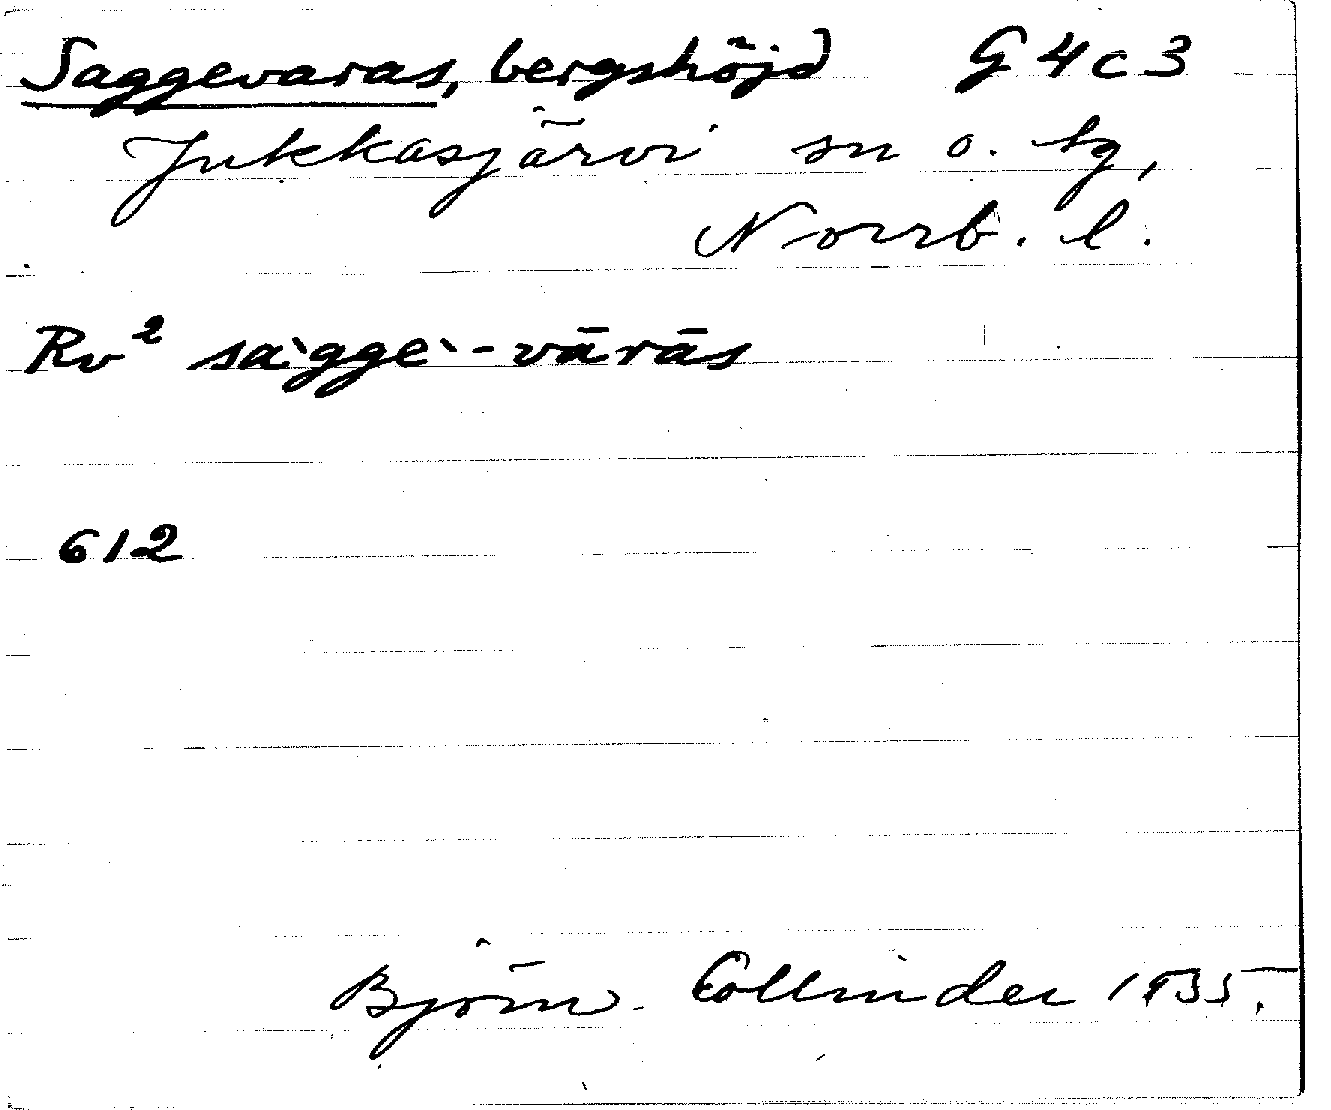 Saggevaras, bergshöjd G4c3
Jukkasjärvi sn o. tg,
Norrb. l.
Rv² sa`gge`-vārās
612
Björn Collinder 1935.